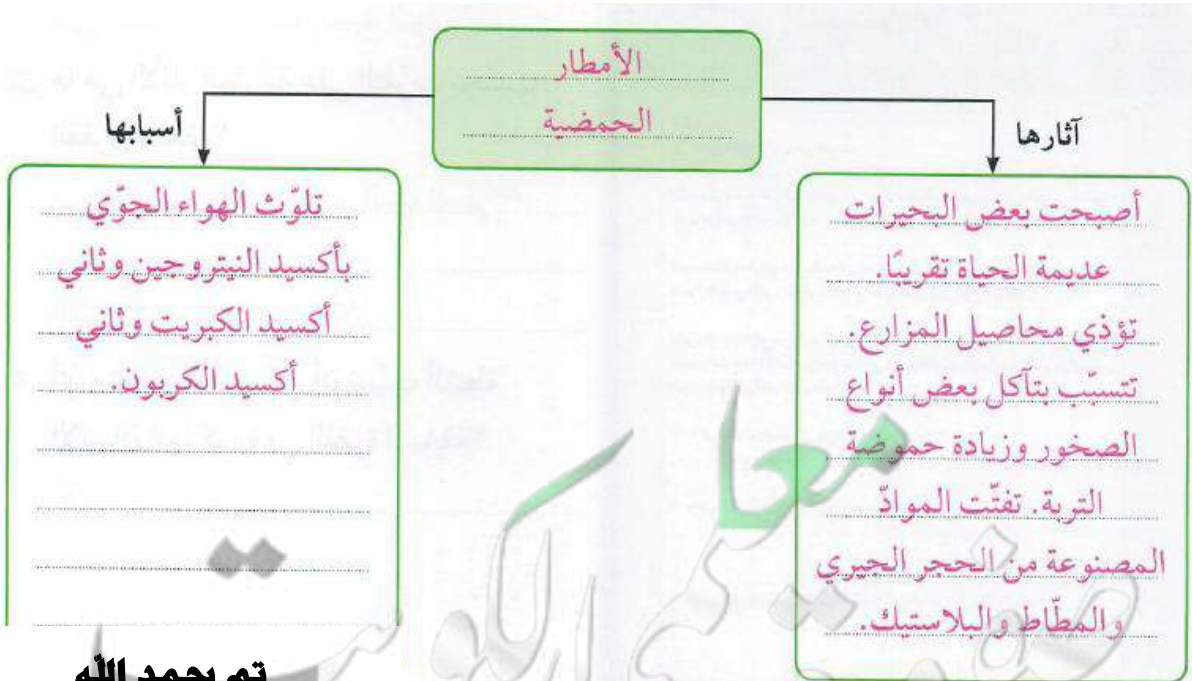 الأمطار
الحمضية
آثارها
أصبحت بعض البحيرات
عديمة الحياة تقريبًا.
تؤذي محاصيل المزارع.
تتسبّب بتآكل بعض أنواع
الصخور وزيادة حموضة
التربة. تفتّت الموادّ
المصنوعة من الحجر الجيري
والمطّاط والبلاستيك.
أسبابها
تلوّث الهواء الجوّي
بأكسيد النيتروجين وثاني
أكسيد الكبريت وثاني
أكسيد الكربون.
تم بحمد الله